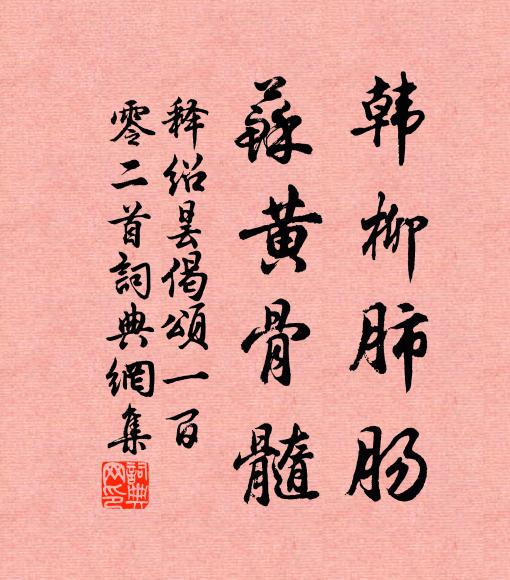 韩柳肺肠
蘇黄骨髓
釋绍昙偈頌一百
零二首詞典網集
詞典网印